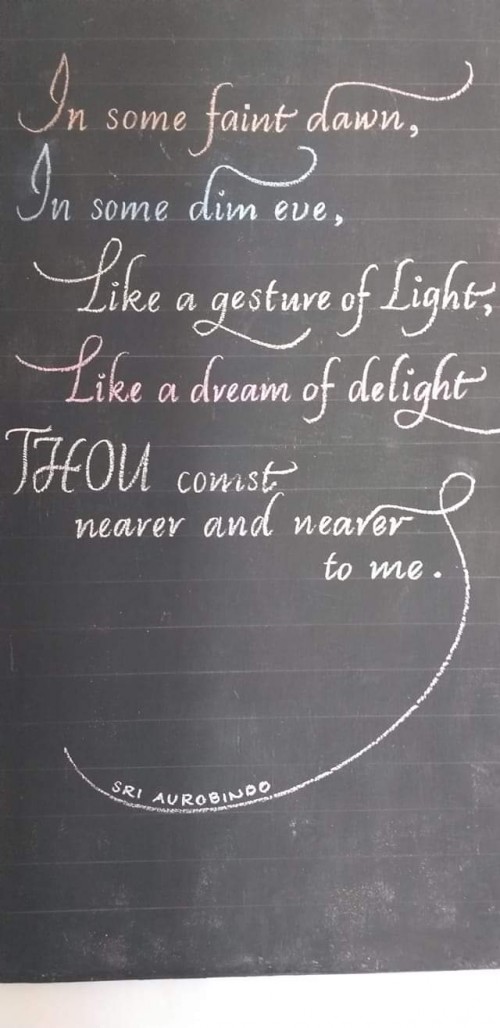 In some faint dawn,
In some dim eve,
Like a gesture of Light,
Like a dream of delight
THOU comst
nearer and nearer
to me.
SRI AUROBINDO